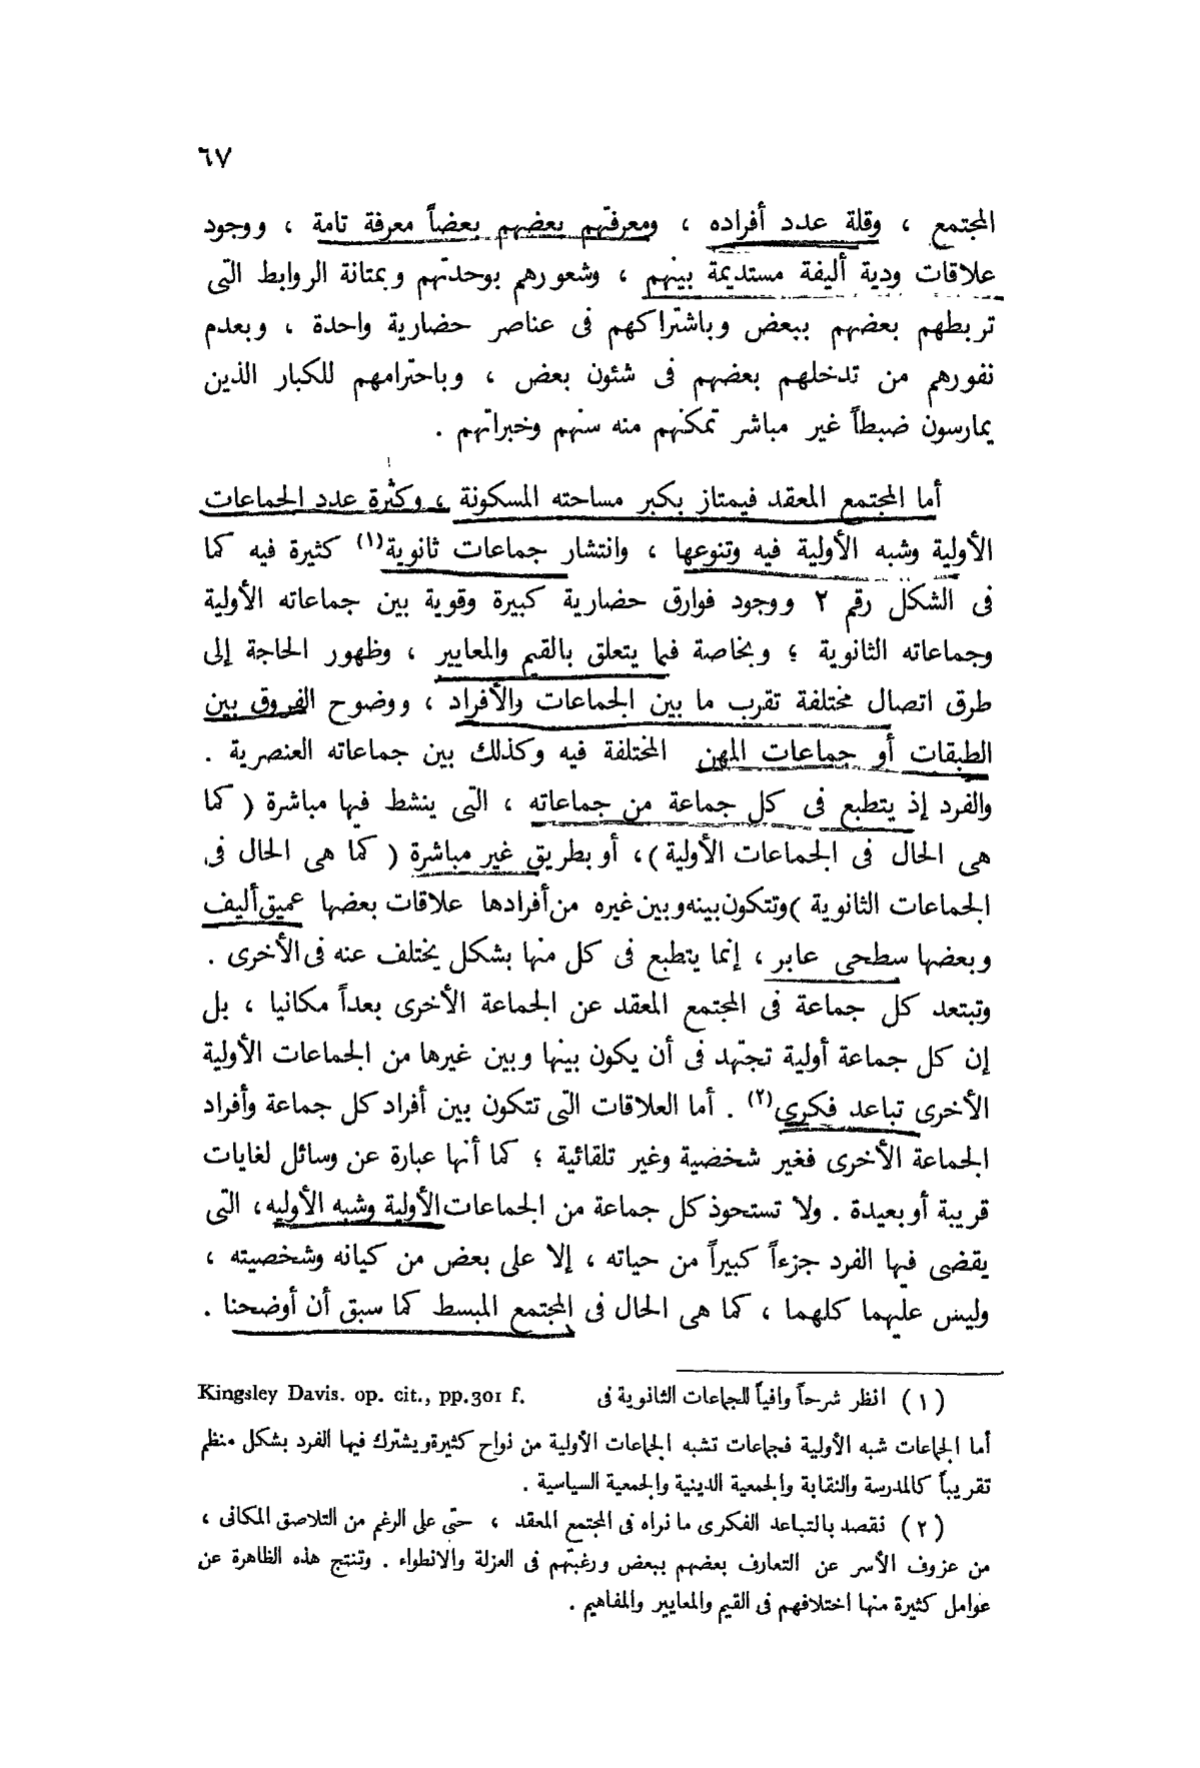 ٦٧
المجتمع ، وقلة عدد أفراده ، ومعرفتهم بعضهم بعضاً معرفة تامة ، ووجود
علاقات ودية أليفة مستديمة بينهم ، وشعورهم بوحدتهم وبمتانة الروابط التى
تربطهم بعضهم ببعض وباشتراكهم فى عناصر حضارية واحدة ، وبعدم
نفورهم من تدخلهم بعضهم فى شئون بعض ، وباحترامهم للكبار الذين
يمارسون ضبطاً غير مباشر تمكنهم منه سنهم وخبراتهم .
أما المجتمع المعقد فيمتاز بكبر مساحته المسكونة ، وكثرة عدد الجماعات
الأولية وشبه الأولية فيه وتنوعها ، وانتشار جماعات ثانوية(١) كثيرة فيه كما
فى الشكل رقم ٢ ووجود فوارق حضارية كبيرة وقوية بين جماعاته الأولية
وجماعاته الثانوية ؛ وبخاصة فيما يتعلق بالقيم والمعايير ، وظهور الحاجة إلى
طرق اتصال مختلفة تقرب ما بين الجماعات والأفراد ، ووضوح الفروق بين
الطبقات أو جماعات المهن المختلفة فيه وكذلك بين جماعاته العنصرية .
والفرد إذ يتطبع فى كل جماعة من جماعاته ، التى ينشط فيها مباشرة ( كما
هى الحال فى الجماعات الأولية )، أو بطريق غير مباشرة ( كما هى الحال فى
الجماعات الثانوية )وتتكون بينه وبين غيره من أفرادها علاقات بعضها عميق أليف
وبعضها سطحى عابر ، إنما يتطبع فى كل منها بشكل يختلف عنه فى الأخرى .
وتبتعد كل جماعة فى المجتمع المعقد عن الجماعة الأخرى بعداً مكانيا ، بل
إن كل جماعة أولية تجتهد فى أن يكون بينها وبين غيرها من الجماعات الأولية
الأخرى تباعد فكرى(٢) . أما العلاقات التى تتكون بين أفراد كل جماعة وأفراد
الجماعة الأخرى فغير شخصية وغير تلقائية ؛ كما أنها عبارة عن وسائل لغايات
قريبة أو بعيدة . ولا تستحوذ كل جماعة من الجماعات الأولية وشبه الأوليه، التى
يقضى فيها الفرد جزءاً كبيراً من حياته ، إلا على بعض من كيانه وشخصيته ،
وليس عليهما كلهما ، كما هى الحال فى المجتمع المبسط كما سبق أن أوضحنا .
(١) انظر شرحاً وافياً للجماعات الثانوية فى Kingsley Davis. op. cit., pp.301 f.
أما الجماعات شبه الأولية فجماعات تشبه الجماعات الأولية من نواح كثيرة ويشترك فيها الفرد بشكل منظم
تقريباً كالمدرسة والنقابة والجمعية الدينية والجمعية السياسية .
(٢) نقصد بالتباعد الفكرى ما نراه فى المجتمع المعقد ، حتى على الرغم من التلاصق المكانى ،
من عزوف الأسر عن التعارف بعضهم ببعض ورغبتهم فى العزلة والانطواء . وتنتج هذه الظاهرة عن
عوامل كثيرة منها اختلافهم فى القيم والمعايير والمفاهيم .